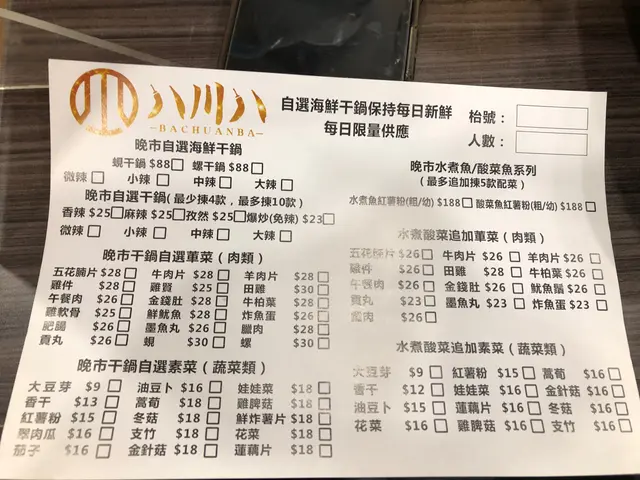 八川八
BACHUANBA
自選海鮮干鍋保持每日新鮮
每日限量供應
枱號：
人數：
晚市自選海鮮干鍋
蜆干鍋 $88 螺干鍋 $88
微辣 小辣 中辣 大辣
晚市自選干鍋(最少揀4款，最多揀10款)
香辣 $25 麻辣 $25 孜然 $25 爆炒(免辣) $23
微辣 小辣 中辣 大辣
晚市干鍋自選葷菜（肉類）
五花腩片 $28 牛肉片 $28 羊肉片 $28
雞件 $28 雞腎 $25 田雞 $30
午餐肉 $26 金錢肚 $28 牛柏葉 $28
雞軟骨 $25 鮮魷魚 $28 炸魚蛋 $26
肥腸 $26 墨魚丸 $26 臘肉 $28
貢丸 $26 蜆 $30 螺 $30
晚市干鍋自選素菜（蔬菜類）
大豆芽 $9 油豆卜 $16 娃娃菜 $18
香干 $13 茼蒿 $18 雞脾菇 $18
紅薯粉 $15 冬菇 $18 鮮炸薯片 $18
翠肉瓜 $16 支竹 $18 花菜 $18
茄子 $16 金針菇 $18 蓮藕片 $18
晚市水煮魚/酸菜魚系列
（最多追加揀5款配菜）
水煮魚紅薯粉(粗/幼) $188 酸菜魚紅薯粉(粗/幼) $188
水煮酸菜追加葷菜（肉類）
五花腩片 $26 牛肉片 $26 羊肉片 $26
雞件 $26 田雞 $28 牛柏葉 $26
午餐肉 $26 金錢肚 $26 魷魚鬚 $26
貢丸 $23 墨魚丸 $23 炸魚蛋 $23
臘肉 $26
水煮酸菜追加素菜（蔬菜類）
大豆芽 $9 紅薯粉 $15 茼蒿 $16
香干 $12 娃娃菜 $16 金針菇 $16
油豆卜 $15 蓮藕片 $16 冬菇 $16
花菜 $16 雞脾菇 $16 支竹 $16